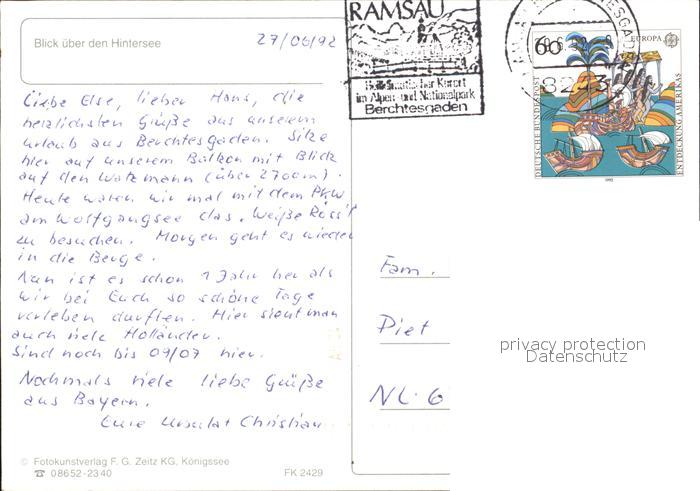 Blick über den Hintersee
27/06/92
Liebe Else, lieber Hans, die
herzlichsten Grüße aus unserem
Urlaub aus Berchtesgaden. Sitze
hier auf unserem Balkon mit Blick
auf den Watzmann (über 2700m).
Heute waren wir mal mit dem PKW
am Wolfgangsee das "Weiße Röss'l
zu besuchen. Morgen geht es wieder
in die Berge.
Nun ist es schon 1 Jahr her als
wir bei Euch so schöne Tage
verleben durften. Hier sieht man
auch viele Holländer.
Sind noch bis 09/07 hier.
Nochmals viele liebe Grüße
aus Bayern.
Eure Ursula + Christian
© Fotokunstverlag F. G. Zeitz KG, Königssee
☎ 08652-2340
FK 2429
RAMSAU
Heilklimatischer Kurort
im Alpen- und Nationalpark
Berchtesgaden
60
EUROPA
DEUTSCHE BUNDESPOST
ENTDECKUNG AMERIKAS
1992
Fam.
Piet
NL-6
privacy protection
Datenschutz